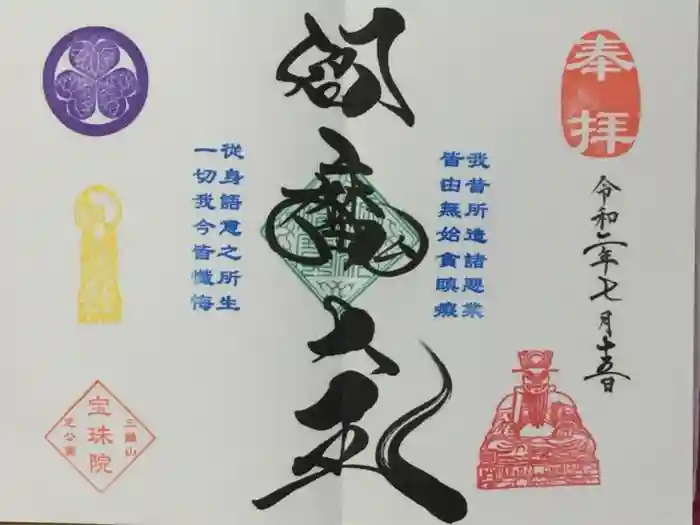 奉拝
令和二年七月十五日
我昔所造諸悪業
皆由無始貪瞋癡
閻魔大王
從身語意之所生
一切我今皆懺悔
三縁山
宝珠院
芝公園